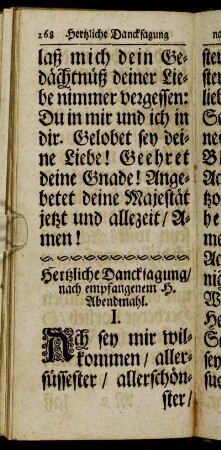 268 Hertzliche Dancksagung
laß mich dein Ge-
dächtnüß deiner Lie-
be nimmer vergessen:
Du in mir und ich in
dir. Gelobet sey dei-
ne Liebe! Geehret
deine Gnade! Ange-
betet deine Majestät
jetzt und allezeit/ A-
men!
Hertzliche Dancksagung/
nach empfangenem H.
Abendmahl.
I.
Ach sey mir wil-
kommen/ aller-
süssester/ allerschön-
ster/